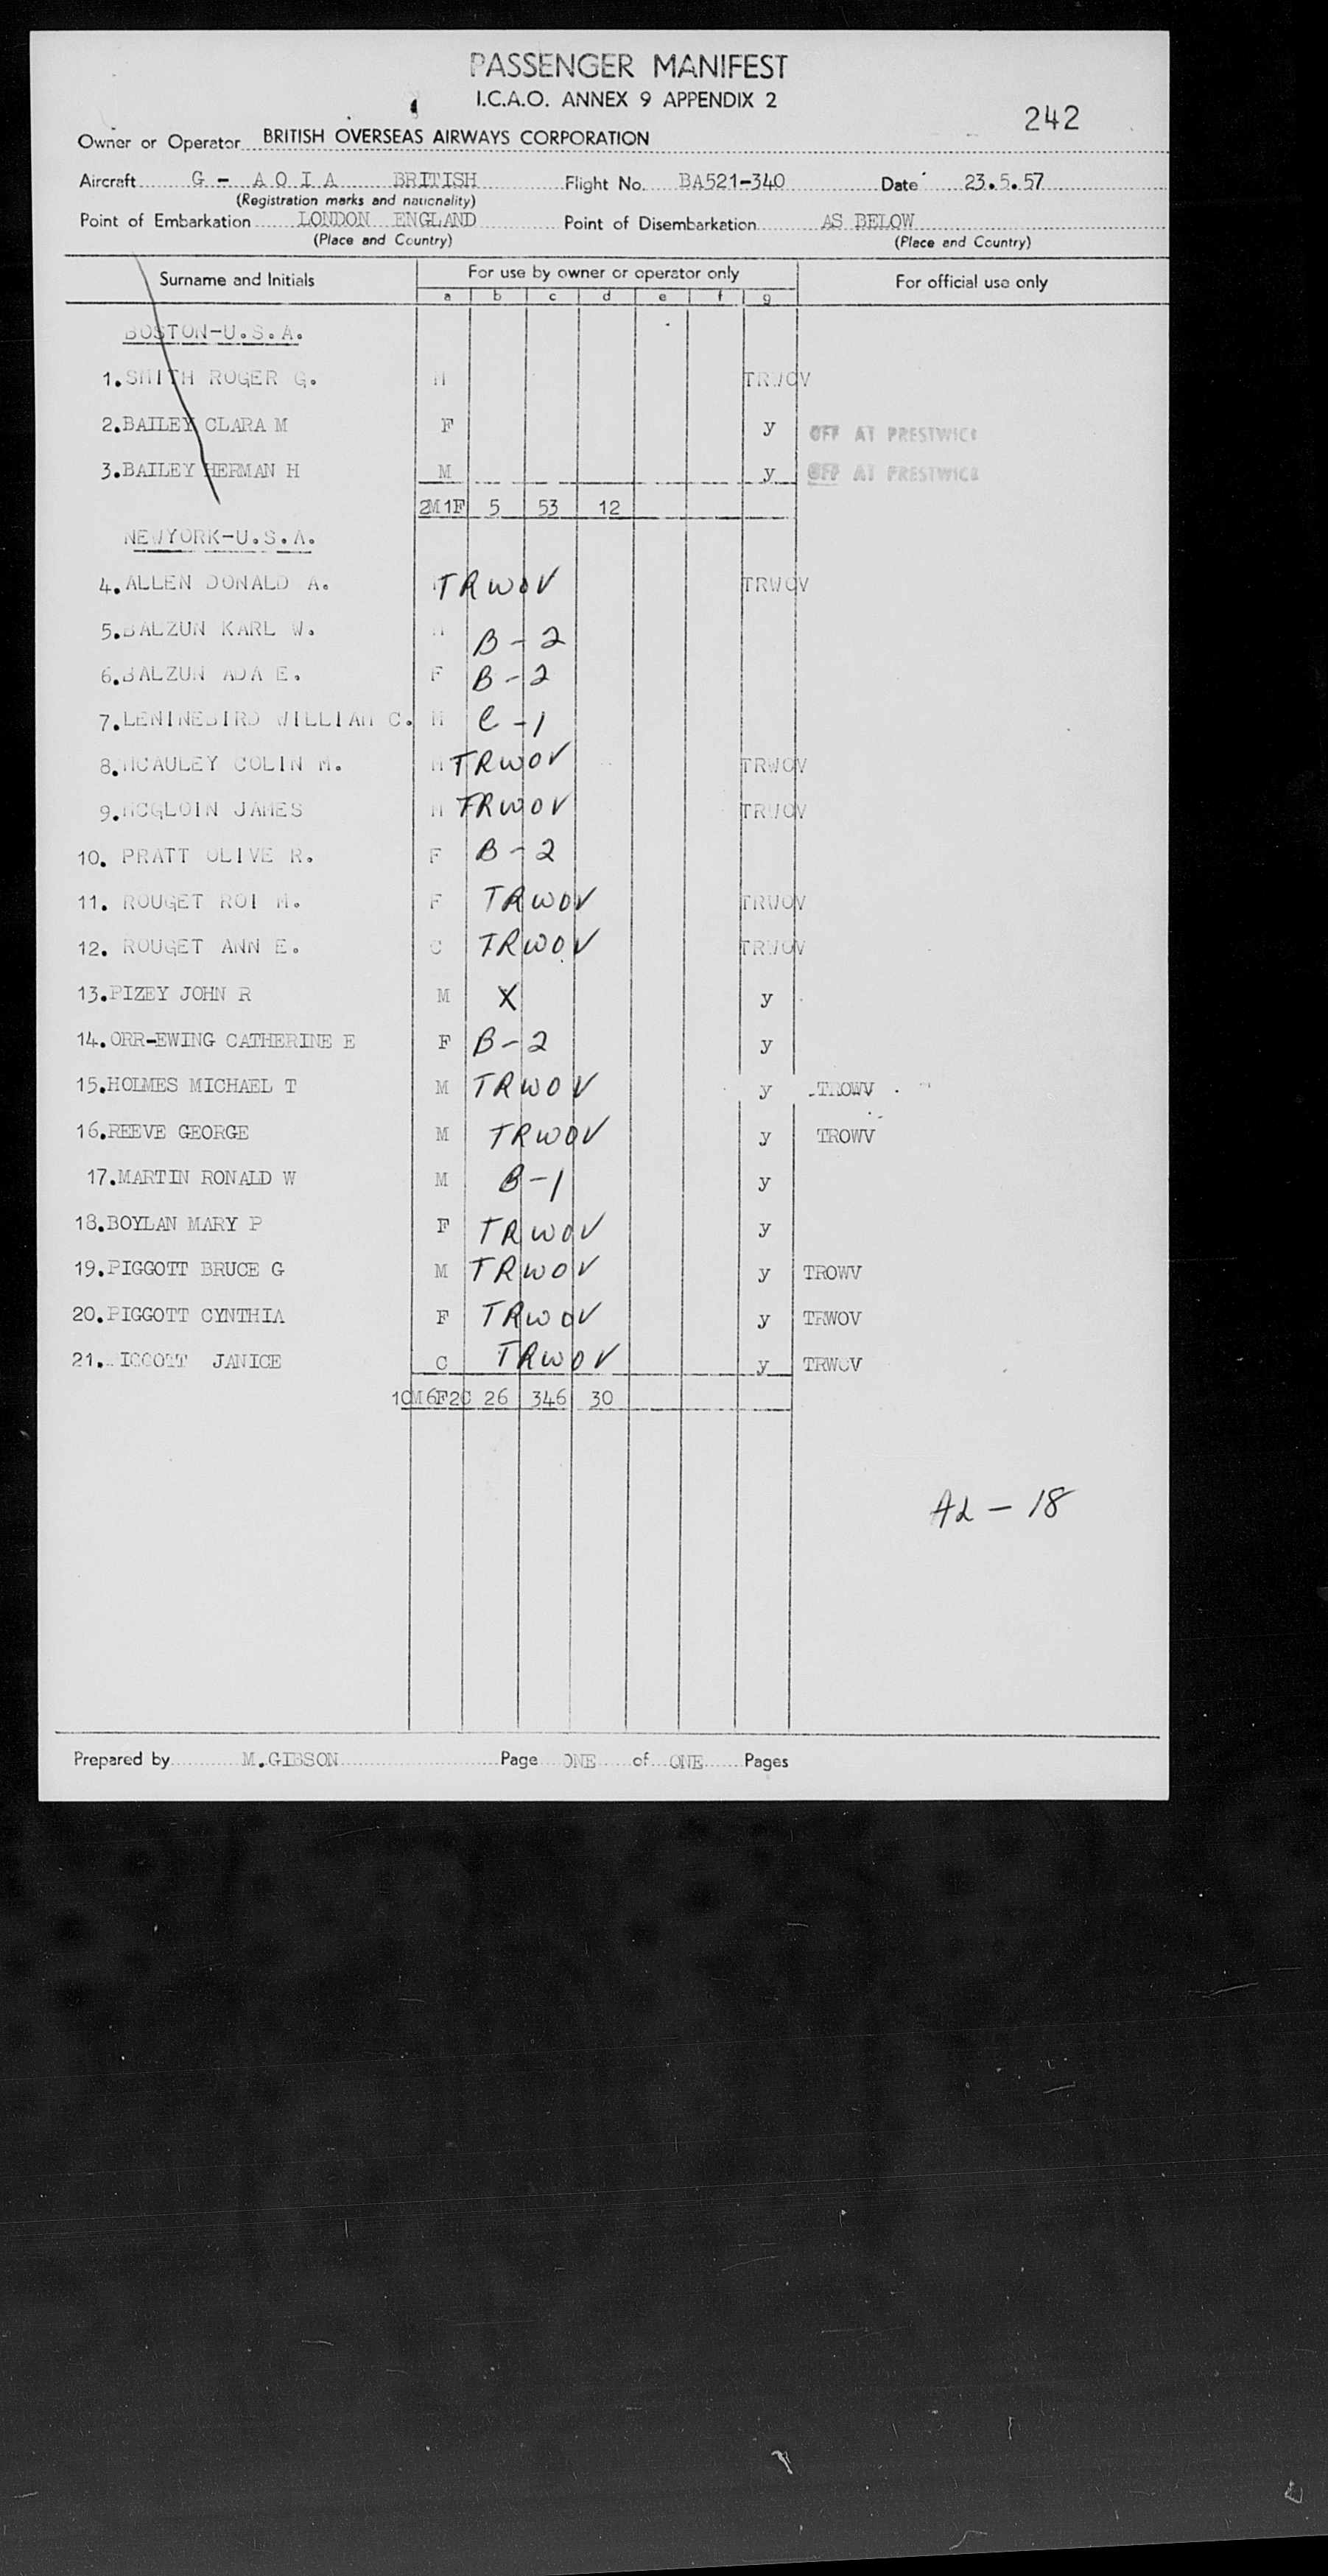 PASSENGER MANIFEST
I.C.A.O. ANNEX 9 APPENDIX 2
242
Owner or Operator BRITISH OVERSEAS AIRWAYS CORPORATION
Aircraft G - A O I A BRITISH Flight No. BA521-340 Date 23.5.57
(Registration marks and nationality)
Point of Embarkation LONDON ENGLAND Point of Disembarkation AS BELOW
(Place and Country) (Place and Country)
Surname and Initials For use by owner or operator only For official use only
a b c d e f g
BOSTON-U.S.A.
1. SMITH ROGER G. M TRWOV
2. BAILEY CLARA M F y OFF AT PRESTWICK
3. BAILEY HERMAN H M y OFF AT PRESTWICK
2M1F 5 53 12
NEWYORK-U.S.A.
4. ALLEN DONALD A. TRWOV TRWOV
5. BALZUN KARL W. M B-2
6. BALZUN ADA E. F B-2
7. WILLIAM C. M C-1
8. MCAULEY COLIN M. M TRWOV TRWOV
9. MCGLOIN JAMES M TRWOV TRWOV
10. PRATT OLIVE R. F B-2
11. ROUGET ROI M. F TRWOV TRWOV
12. ROUGET ANN E. C TRWOV TRWOV
13. PIZEY JOHN R M X y
14. ORR-EWING CATHERINE E F B-2 y
15. HOLMES MICHAEL T M TRWOV y TROWV
16. REEVE GEORGE M TRWOV y TROWV
17. MARTIN RONALD W M B-1 y
18. BOYLAN MARY P F TRWOV y
19. PIGGOTT BRUCE G M TRWOV y TROWV
20. PIGGOTT CYNTHIA F TRWOV y TRWOV
21. PIGGOTT JANICE C TRWOV y TRWOV
10M6F2C 26 346 30
A2 - 18
Prepared by M.GIBSON Page ONE of ONE Pages